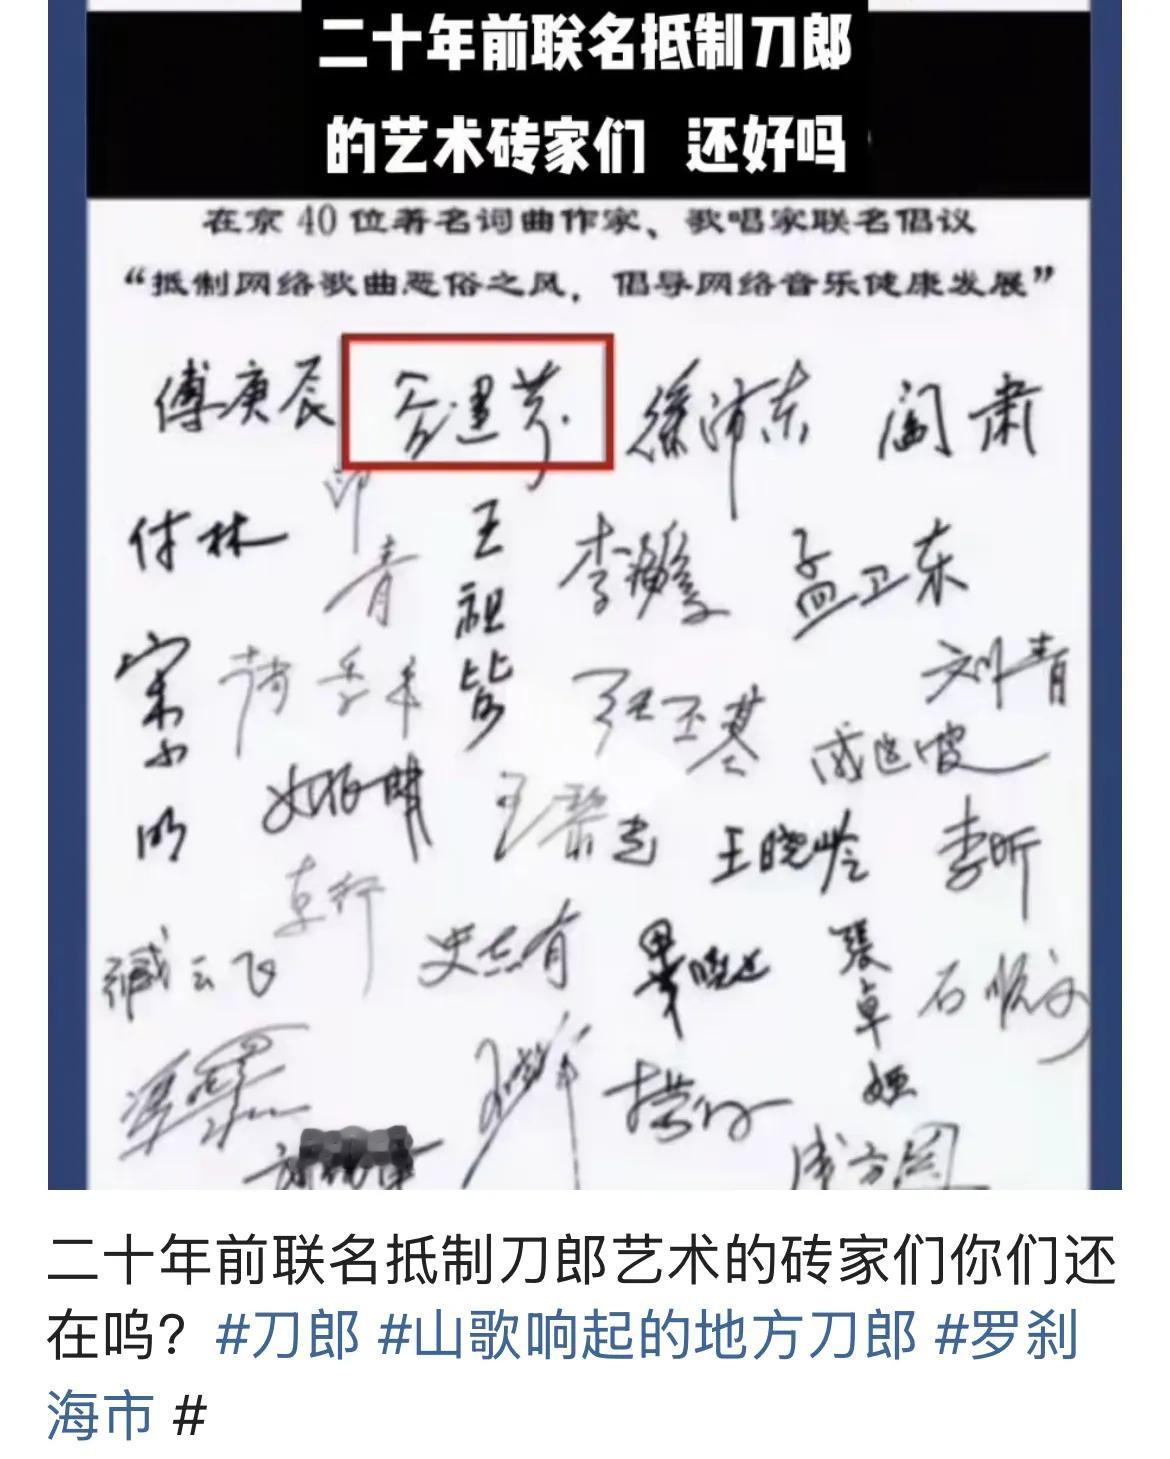 二十年前联名抵制刀郎
的艺术砖家们 还好吗
在京 40 位著名词曲作家、歌唱家联名倡议
“抵制网络歌曲恶俗之风，倡导网络音乐健康发展”
傅庚辰 谷建芬 徐沛东 阎肃
付林 印青 王祖皆 李海鹰 孟卫东
宋小明 刘青
戚建波
王晓岭 李昕
臧云飞 卞留念 史志有 张卓娅 石顺义
成方圆
二十年前联名抵制刀郎艺术的砖家们你们还
在呜？#刀郎 #山歌响起的地方刀郎 #罗刹
海市 #